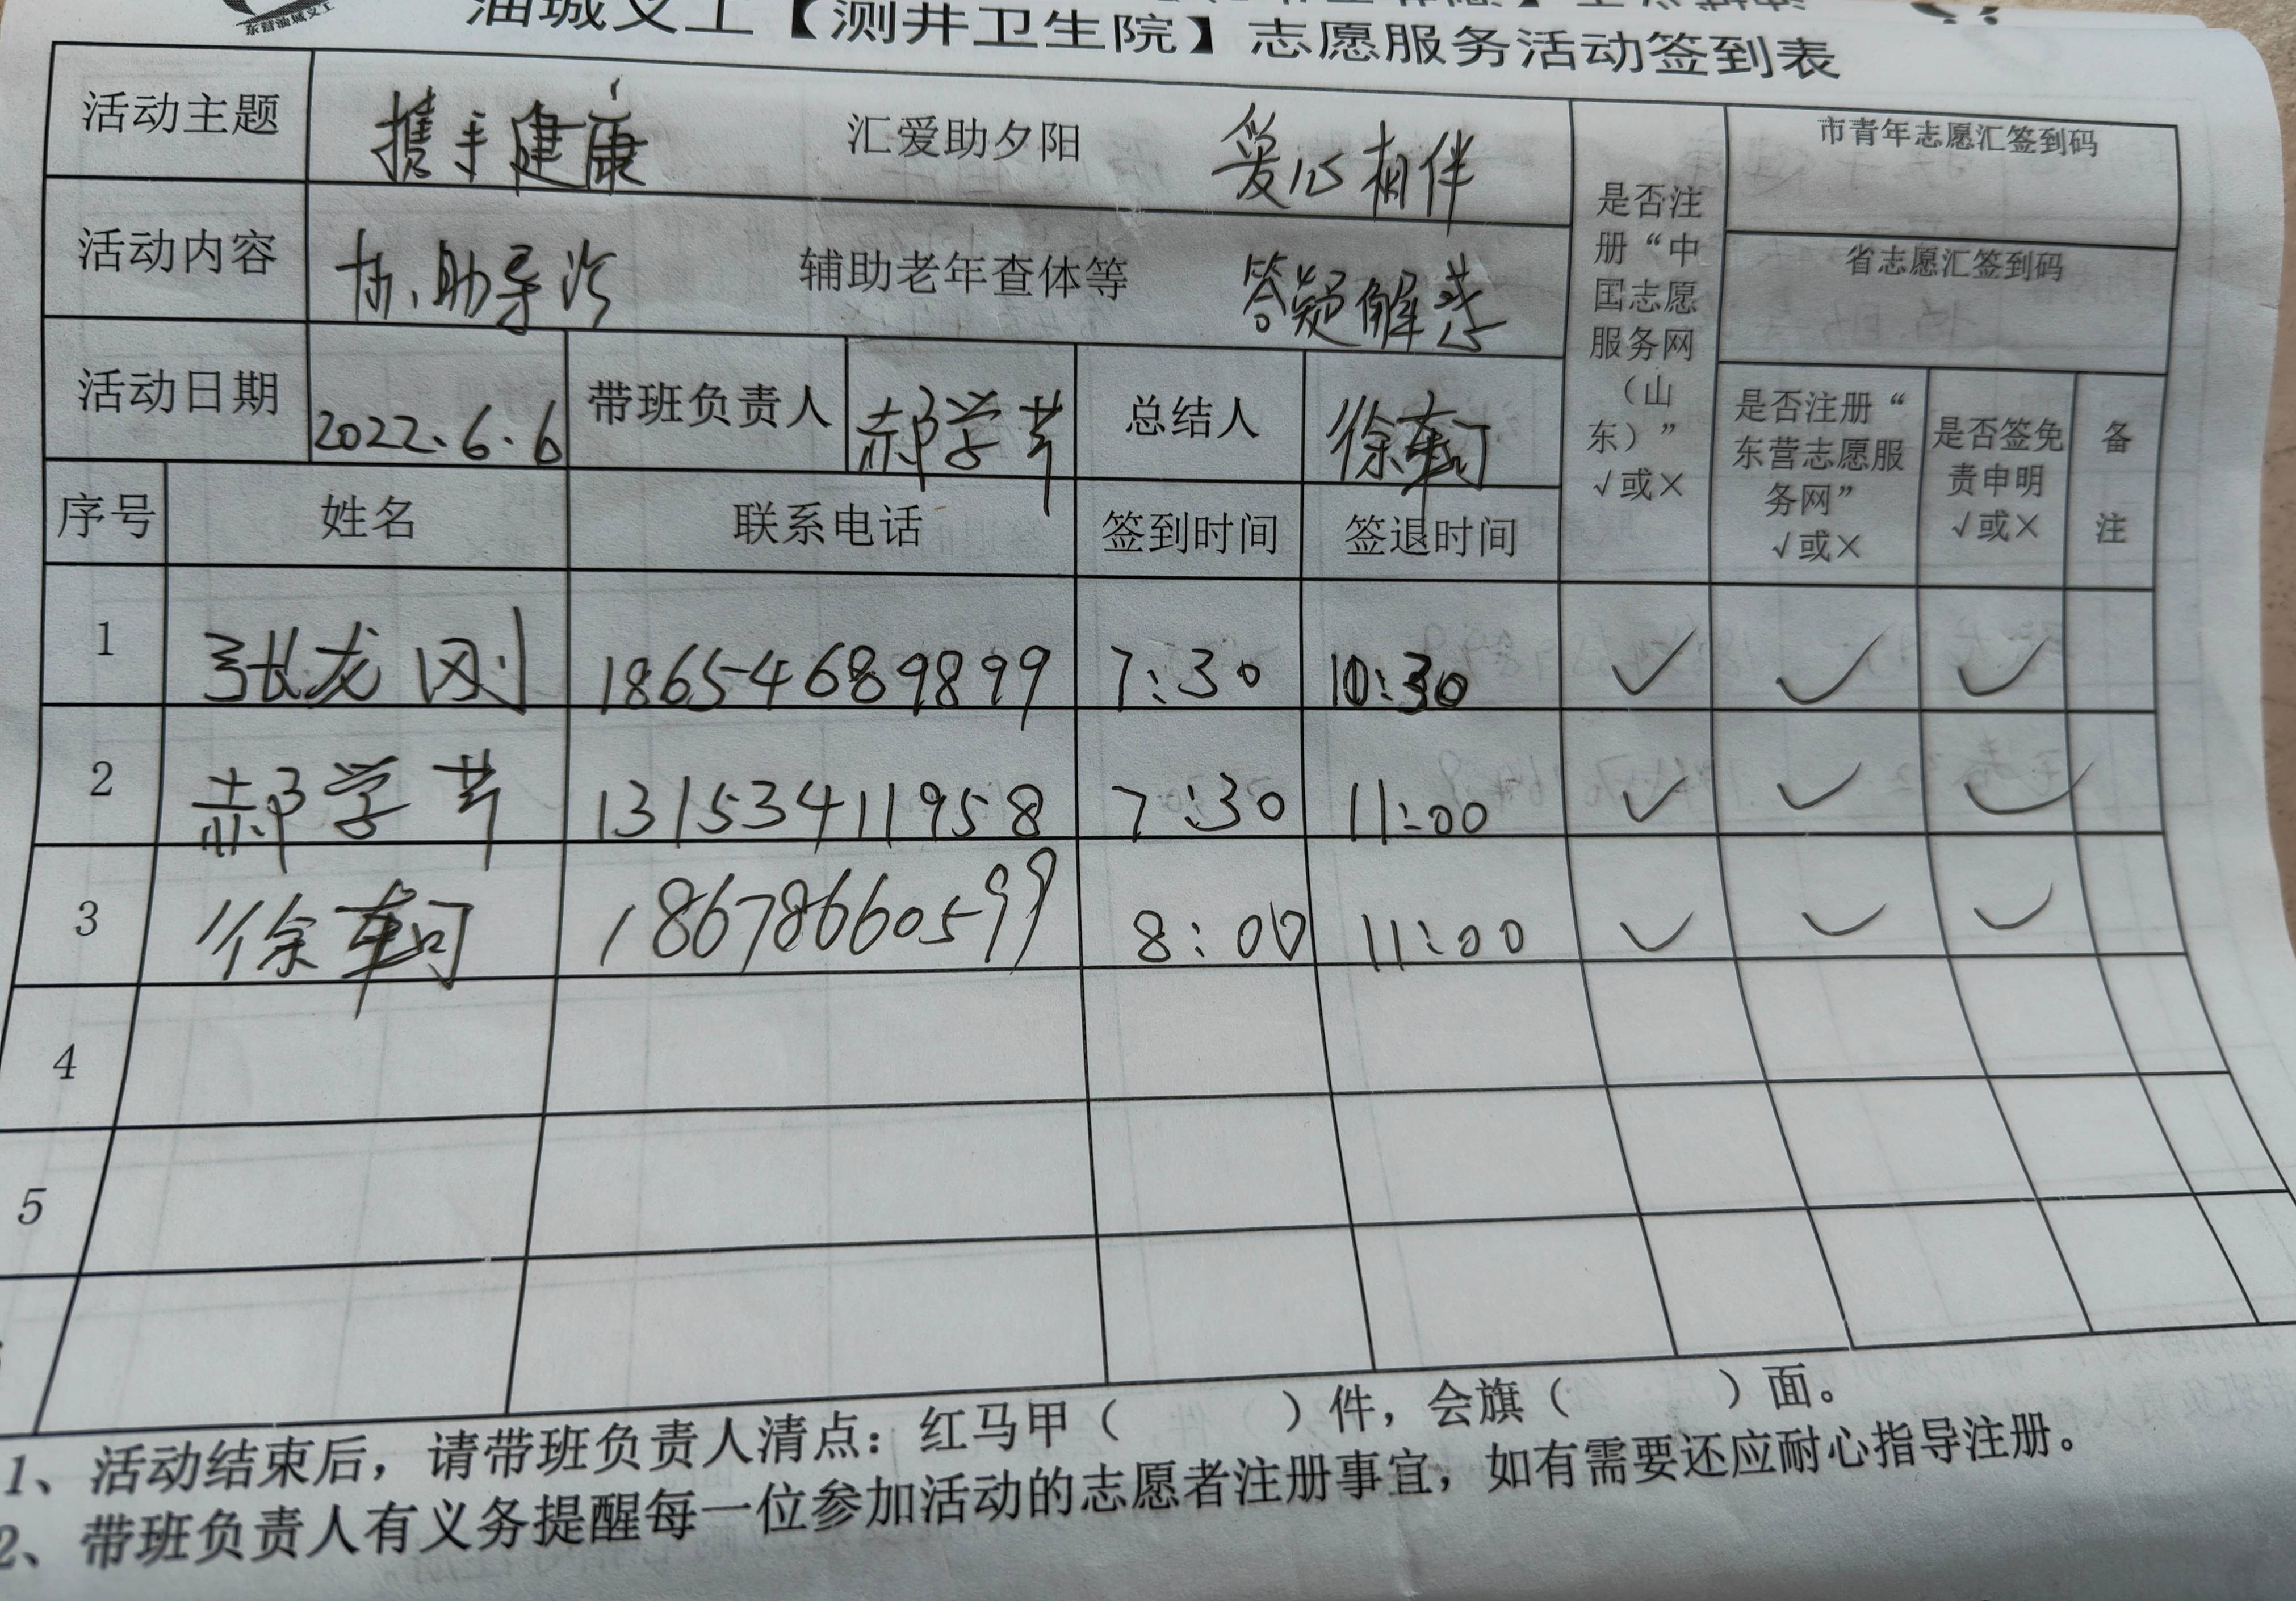 东营油城义工
油城义工【测井卫生院】志愿服务活动签到表
活动主题 携手健康 汇爱助夕阳 爱心相伴
是否注册“中国志愿服务网（山东）” √或×
市青年志愿汇签到码
活动内容 协助导诊 辅助老年查体等 答疑解惑
省志愿汇签到码
活动日期 2022.6.6 带班负责人 郝学芳 总结人 徐
是否注册“东营志愿服务网” √或×
是否签免责申明 √或×
备注
序号 姓名 联系电话 签到时间 签退时间
1 张龙刚 18654689899 7:30 10:30 ✓ ✓ ✓
2 郝学芳 13153411958 7:30 11:00 ✓ ✓ ✓
3 徐 18678660599 8:00 11:00 ✓ ✓ ✓
4
5
1、活动结束后，请带班负责人清点：红马甲（ ）件，会旗（ ）面。
2、带班负责人有义务提醒每一位参加活动的志愿者注册事宜，如有需要还应耐心指导注册。